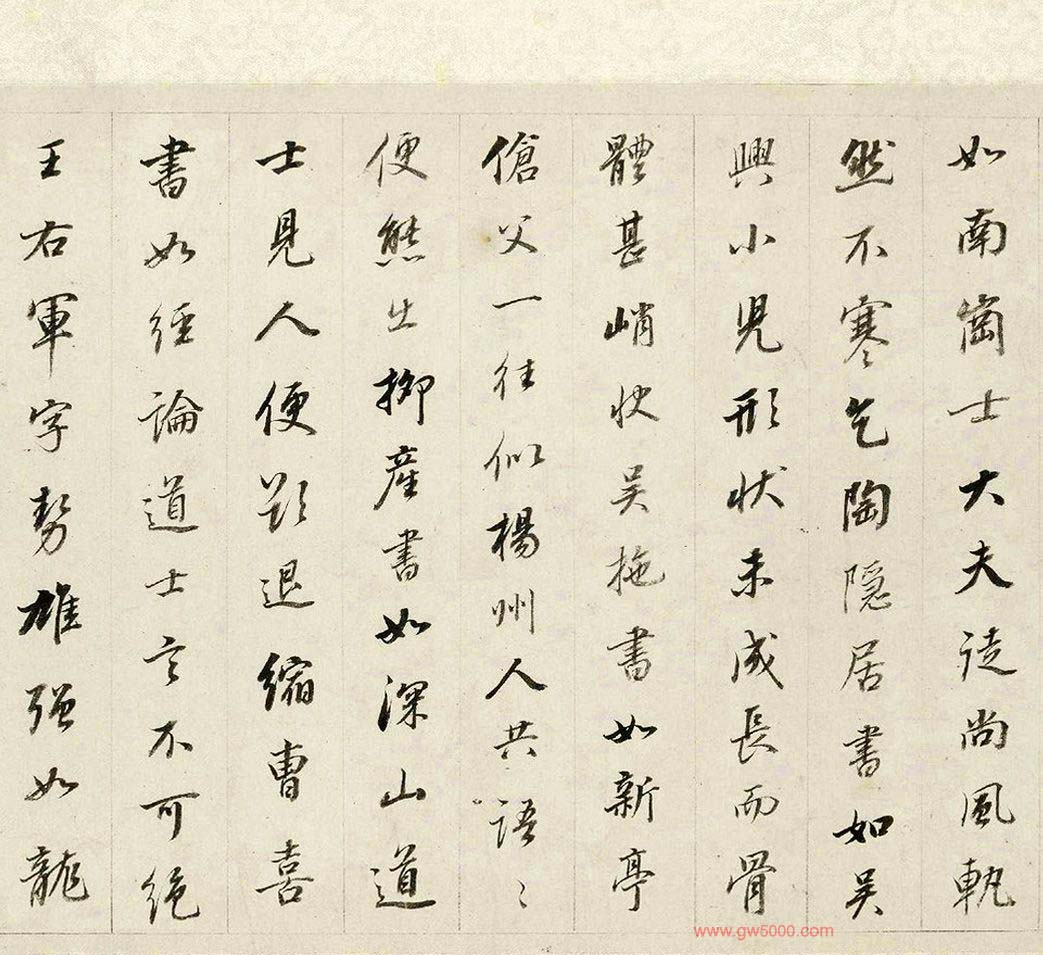 如南崗士大夫徒尚風軌
然不寒乞陶隱居書如吴
興小兒形狀未成長而骨
體甚峭快吴拖書如新亭
傖父一往似楊州人共語〻
便態出柳產書如深山道
士見人便欵退縮曹喜
書如經論道士言不可絕
王右軍字勢雄强如龍
www.gw5000.com